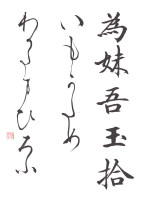 為妹吾玉拾
いもがため
わがたまひろふ